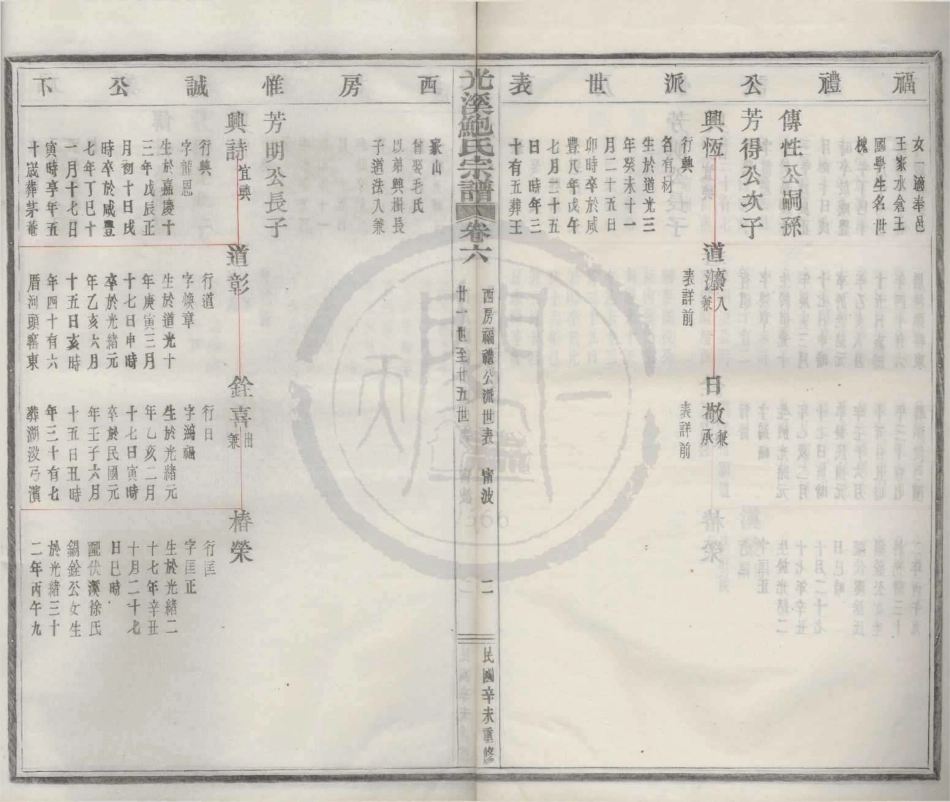 福禮公派世表
女一適奉邑
王家水倉王
國學生名世
槐
傳性公嗣孫
芳得公次子
興恆
行興
名有材
生於道光三
年癸未十一
月二十五日
卯時卒於咸
豐八年戊午
七月三十五
日 時年三
十有五葬王
道濤入兼
表詳前
日敬兼承
表詳前
光溪鮑氏宗譜
卷六
西房福禮公派世表 甯波
廿一世至廿五世
二
民國辛未重修
西房惟誠公下
嶽山
付娶毛氏
以弟興損長
子道法入兼
芳明公長子
興詩
行興
字 恩
生於嘉慶十
三年戊辰正
月初十日戌
時卒於咸豐
七年丁巳十
一月十七日
寅時享年五
十歲葬茅菴
道彰
行道
字煥章
生於道光十
年庚寅三月
十七日申時
卒於光緒元
年乙亥六月
十五日亥時
年四十有六
厝河頭窰東
銓喜出兼
行日
字鴻福
生於光緒元
年乙亥二月
十七日寅時
卒於民國元
年壬子六月
十五日丑時
年三十有七
葬湖浚弓濱
椿榮
行匡
字匡正
生於光緒二
十七年辛丑
十月二十七
日巳時
配伏溪徐氏
錫銓公女生
於光緒三十
二年丙午九